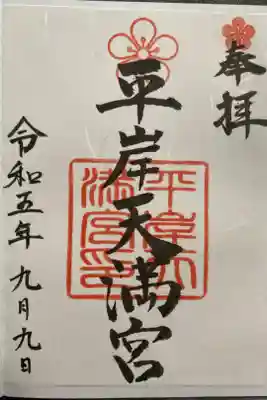 奉拝
平岸天満宮
平岸天
満宮印
令和五年 九月九日